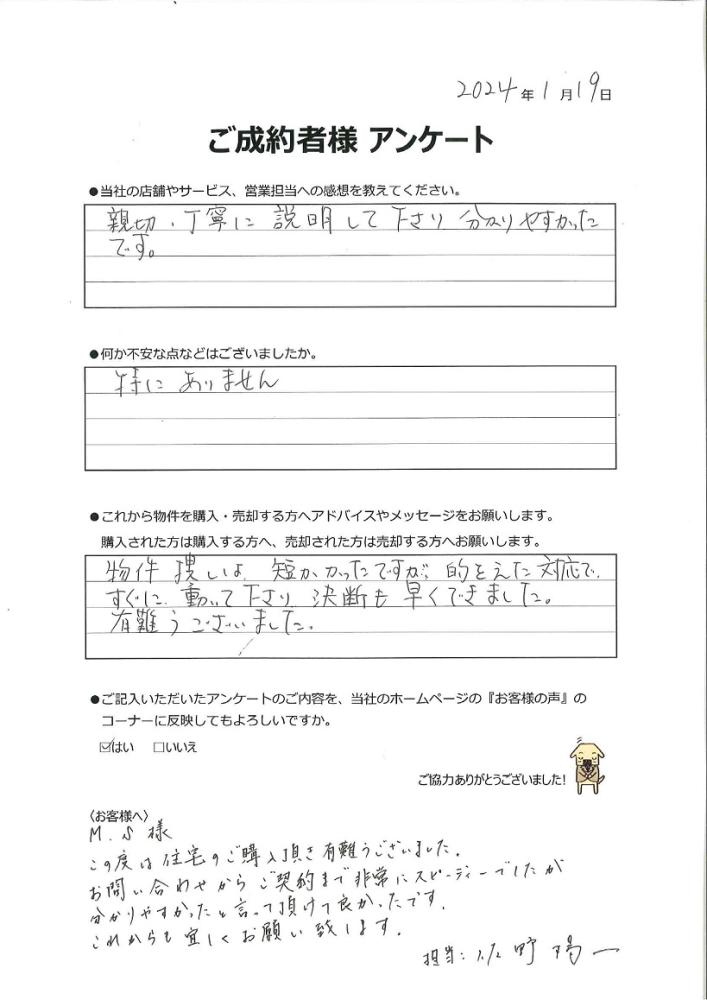 2024年1月19日
ご成約者様 アンケート
●当社の店舗やサービス、営業担当への感想を教えてください。
親切・丁寧に説明して下さり分かりやすかった
です。
●何か不安な点などはございましたか。
特にありません
●これから物件を購入・売却する方へアドバイスやメッセージをお願いします。
購入された方は購入する方へ、売却された方は売却する方へお願いします。
物件捜しは、短かかったですが、的をえた対応で、
すぐに動いて下さり決断も早くできました。
有難うございました。
●ご記入いただいたアンケートのご内容を、当社のホームページの『お客様の声』の
コーナーに反映してもよろしいですか。
☑はい □いいえ
ご協力ありがとうございました!
〈お客様へ〉
M.S様
この度は住宅のご購入頂き有難うございました。
お問い合わせからご契約まで非常にスピーディーでしたが
分かりやすかったと言って頂けて良かったです。
これからも宜しくお願い致します。
担当:佐野陽一